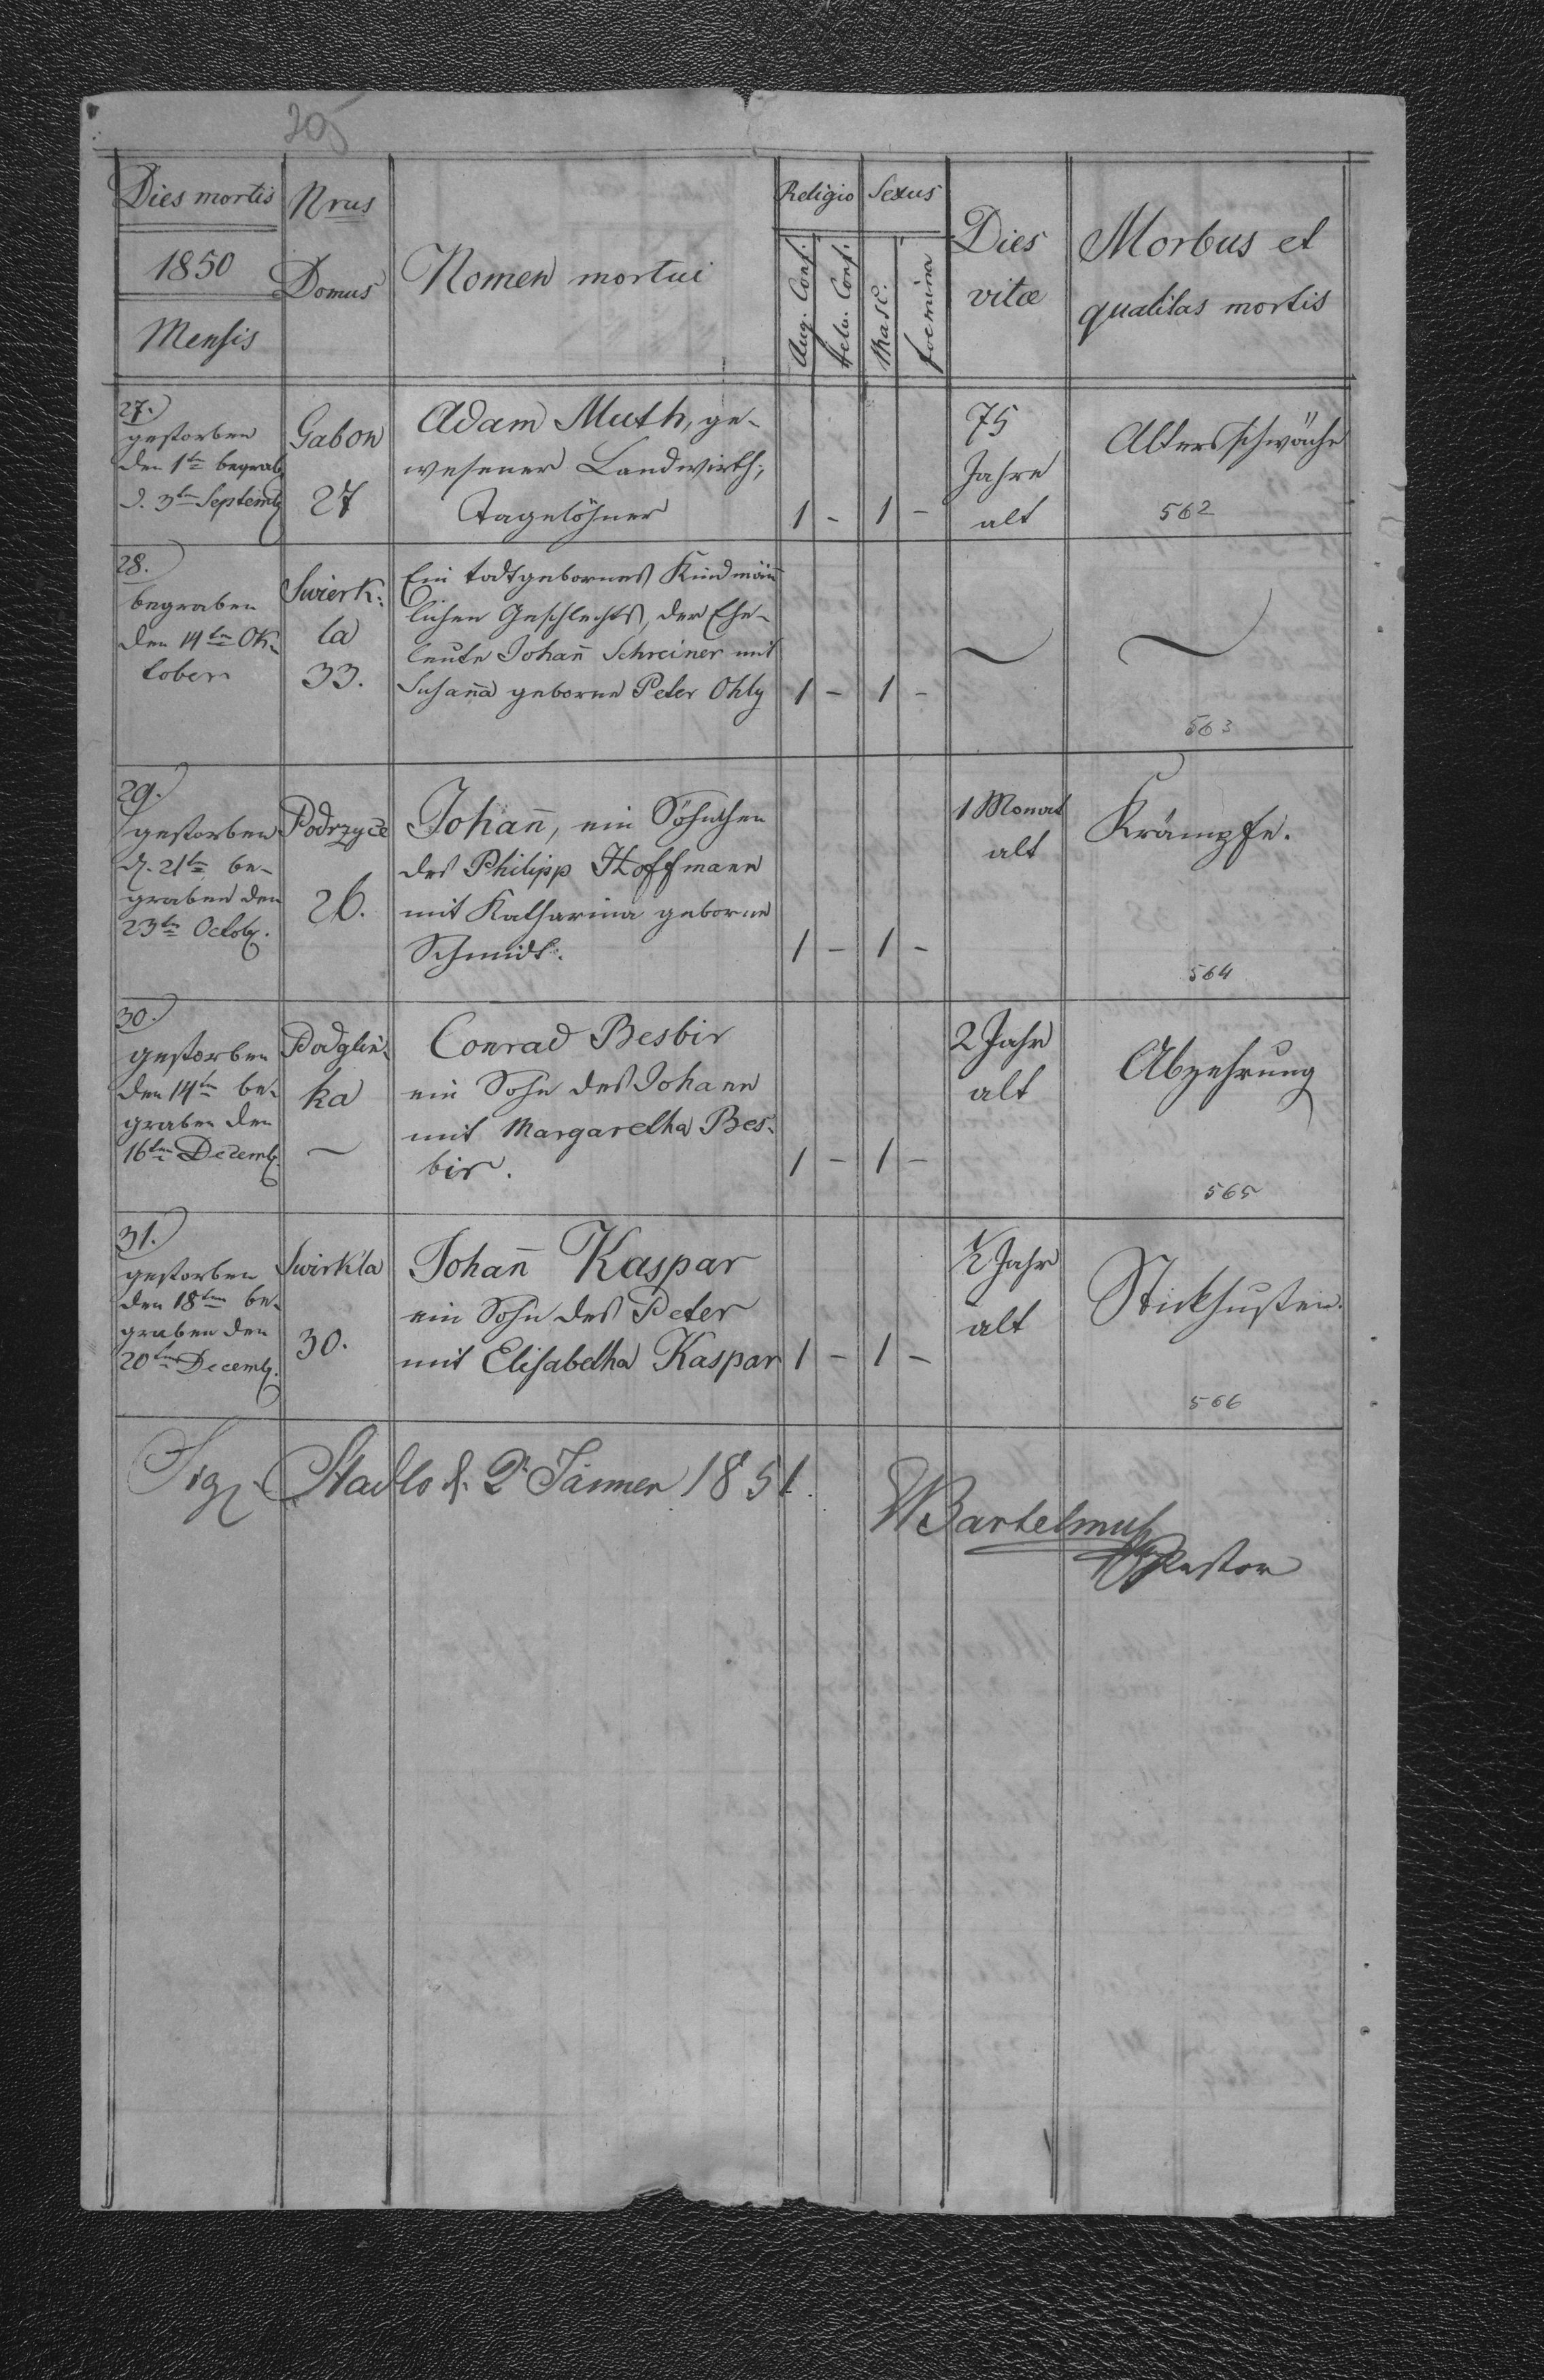 205
Dies mortis
1850
Mensis
Nrus
Domus
Nomen mortui
Religio
Aug. Conf.
Helv. Conf.
Sexus
Masc.
foemina
Dies
vitæ
Morbus et
qualitas mortis
27.
gestorben
den 1ten begrab
d. 3ten Septemb
Gabon
27
Adam Muth, ge-
wesener Landwirth,
Tagelöhner
1 - 1 -
75
Jahre
alt
Altersschwäche
562
28.
begraben
den 14ten Ok-
tober
Swierk:
la
33.
Ein todtgebornes Kind män̄
lichen Geschlechts, der Ehe-
leute Johan̄ Schreiner mit
Susan̄a geborne Peter Ohly
1 - 1 -
563
29.
gestorben
d. 21ten be-
graben den
23ten Octob.
Podrzyce
26.
Johan̄, ein Söhnchen
des Philipp Hoffmann
mit Katharina geborne
Schmidt.
1 - 1 -
1 Monat
alt
Krämpfe.
564
30.
gestorben
den 14ten be-
graben den
16ten Decemb.
Podglin-
ka
Conrad Besbir
ein Sohn des Johann
mit Margaretha Bes-
bir.
1 - 1 -
2 Jahr
alt
Abzehrung
565
31.
gestorben
den 18ten be-
graben den
20ten Decemb.
Swirkla
30.
Johan̄ Kaspar
ein Sohn des Peter
mit Elisabetha Kaspar
1 - 1 -
1/2 Jahr
alt
Stickhusten.
566
Sig. Stadlo d. 2. Jänner 1851.
WBartelmuß
Pastor